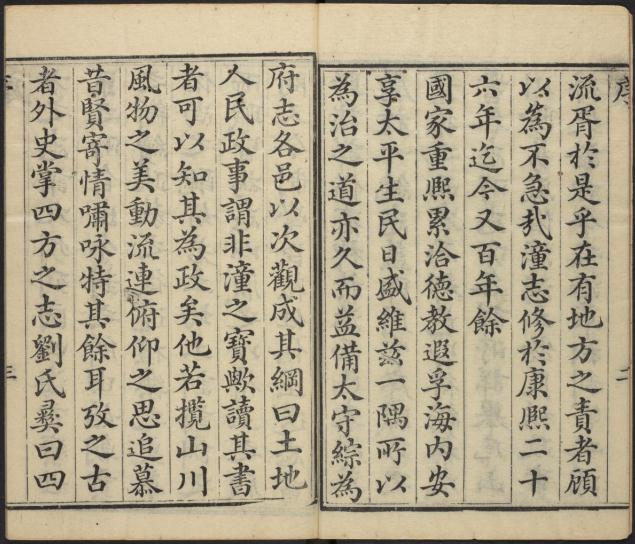 序
流胥於是乎在有地方之責者顧
以為不急㢤潼志修於康熙二十
六年迄今又百年餘
國家重熙累洽德教遐孚海內安
享太平生民日盛維茲一隅所以
為治之道亦久而益備太守綜為
二
府志各邑以次觀成其綱曰土地
人民政事謂非潼之寶歟讀其書
者可以知其為政矣他若攬山川
風物之美動流連俯仰之思追慕
昔賢寄情嘯咏特其餘耳攷之古
者外史掌四方之志劉氏彝曰四
三